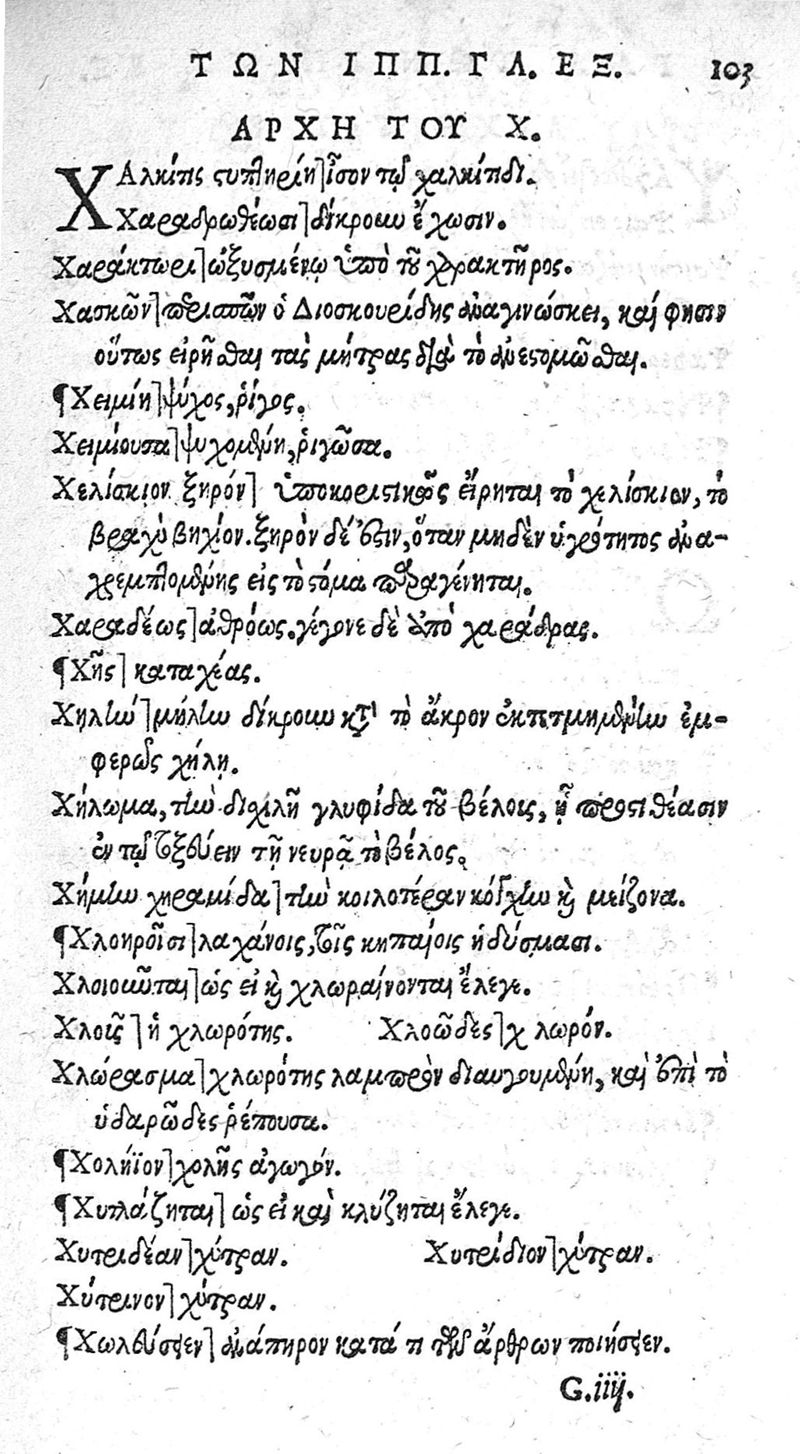 ΤΩΝ ΙΠΠ. ΓΛ. ΕΞ. 103
ΑΡΧΗ ΤΟΥ Χ.
ΧΑλκῖτις στυπτηρίη] ἴσον τῷ χαλκίτιδι.
Χαραδρωθέωσι] δίκρουν ἔχωσιν.
Χαράκτωρι] ὠξυσμένῳ ὑπὸ τοῦ χαρακτῆρος.
Χασκῶν] περισπῶν ὁ Διοσκουρίδης ἀναγινώσκει, καί φησιν
οὕτως εἰρῆσθαι τὰς μήτρας διὰ τὸ ἀνεστομῶσθαι.
¶Χειμίη] ψύχος, ῥίγος.
Χειμίουσα] ψυχομένη, ῥιγῶσα.
Χελίσκιον ξηρόν] ὑποκοριστικῶς εἴρηται τὸ χελίσκιον, τὸ
βραχὺ βηχίον. ξηρὸν δέ ἐστιν, ὅταν μηδὲν ὑγρότητος ἀνα-
χρεμπτομένης εἰς τὸ στόμα παραγένηται.
Χαραδέως] ἀθρόως. γέγονε δὲ ἀπὸ χαράδρας.
¶Χῆς] καταχέας.
Χηλὴν] μήλην δίκρουν κατὰ τὸ ἄκρον ἐκτετμημένην ἐμ-
φερῶς χήλῃ.
Χήλωμα, τὴν διχιλῆ γλυφίδα τοῦ βέλους, ἣ προστιθέασιν
ἐν τῷ τοξεύειν τῇ νευρᾷ τὸ βέλος.
Χήμην χηραμίδα] τὴν κοιλοτέραν κόγχην καὶ μείζονα.
¶Χλοηροῖσι] λαχάνοις, τοῖς κηπαίοις ἡδύσμασι.
Χλοιοῦνται] ὡς εἰ καὶ χλωραίνονται ἔλεγε.
Χλοιῇ] ἡ χλωρότης. Χλοῶδες] χλωρόν.
Χλώρασμα] χλωρότης λαμπρὸν διαυγουμένη, καὶ ἐπὶ τὸ
ὑδαρῶδες ῥέπουσα.
¶Χολήϊον] χολῆς ἀγωγόν.
¶Χυτλάζηται] ὡς εἰ καὶ κλύζηται ἔλεγε.
Χυτριδέαν] χύτραν. Χυτρίδιον] χύτραν.
Χύτρινον] χύτραν.
¶Χωλεύσειεν] ἀνάπηρον κατά τι τῶν ἄρθρων ποιήσειεν.
G.iiij.